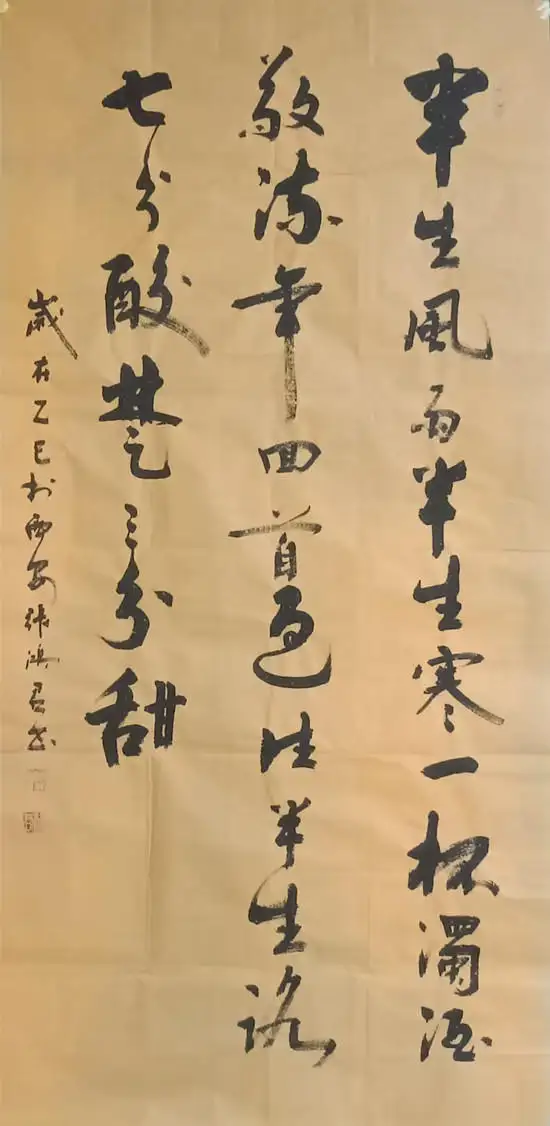 半生风雨半生寒一杯濁酒
敬流年回首過往半生路
七分酸楚三分甜
歲在乙巳於西安張鴻君书